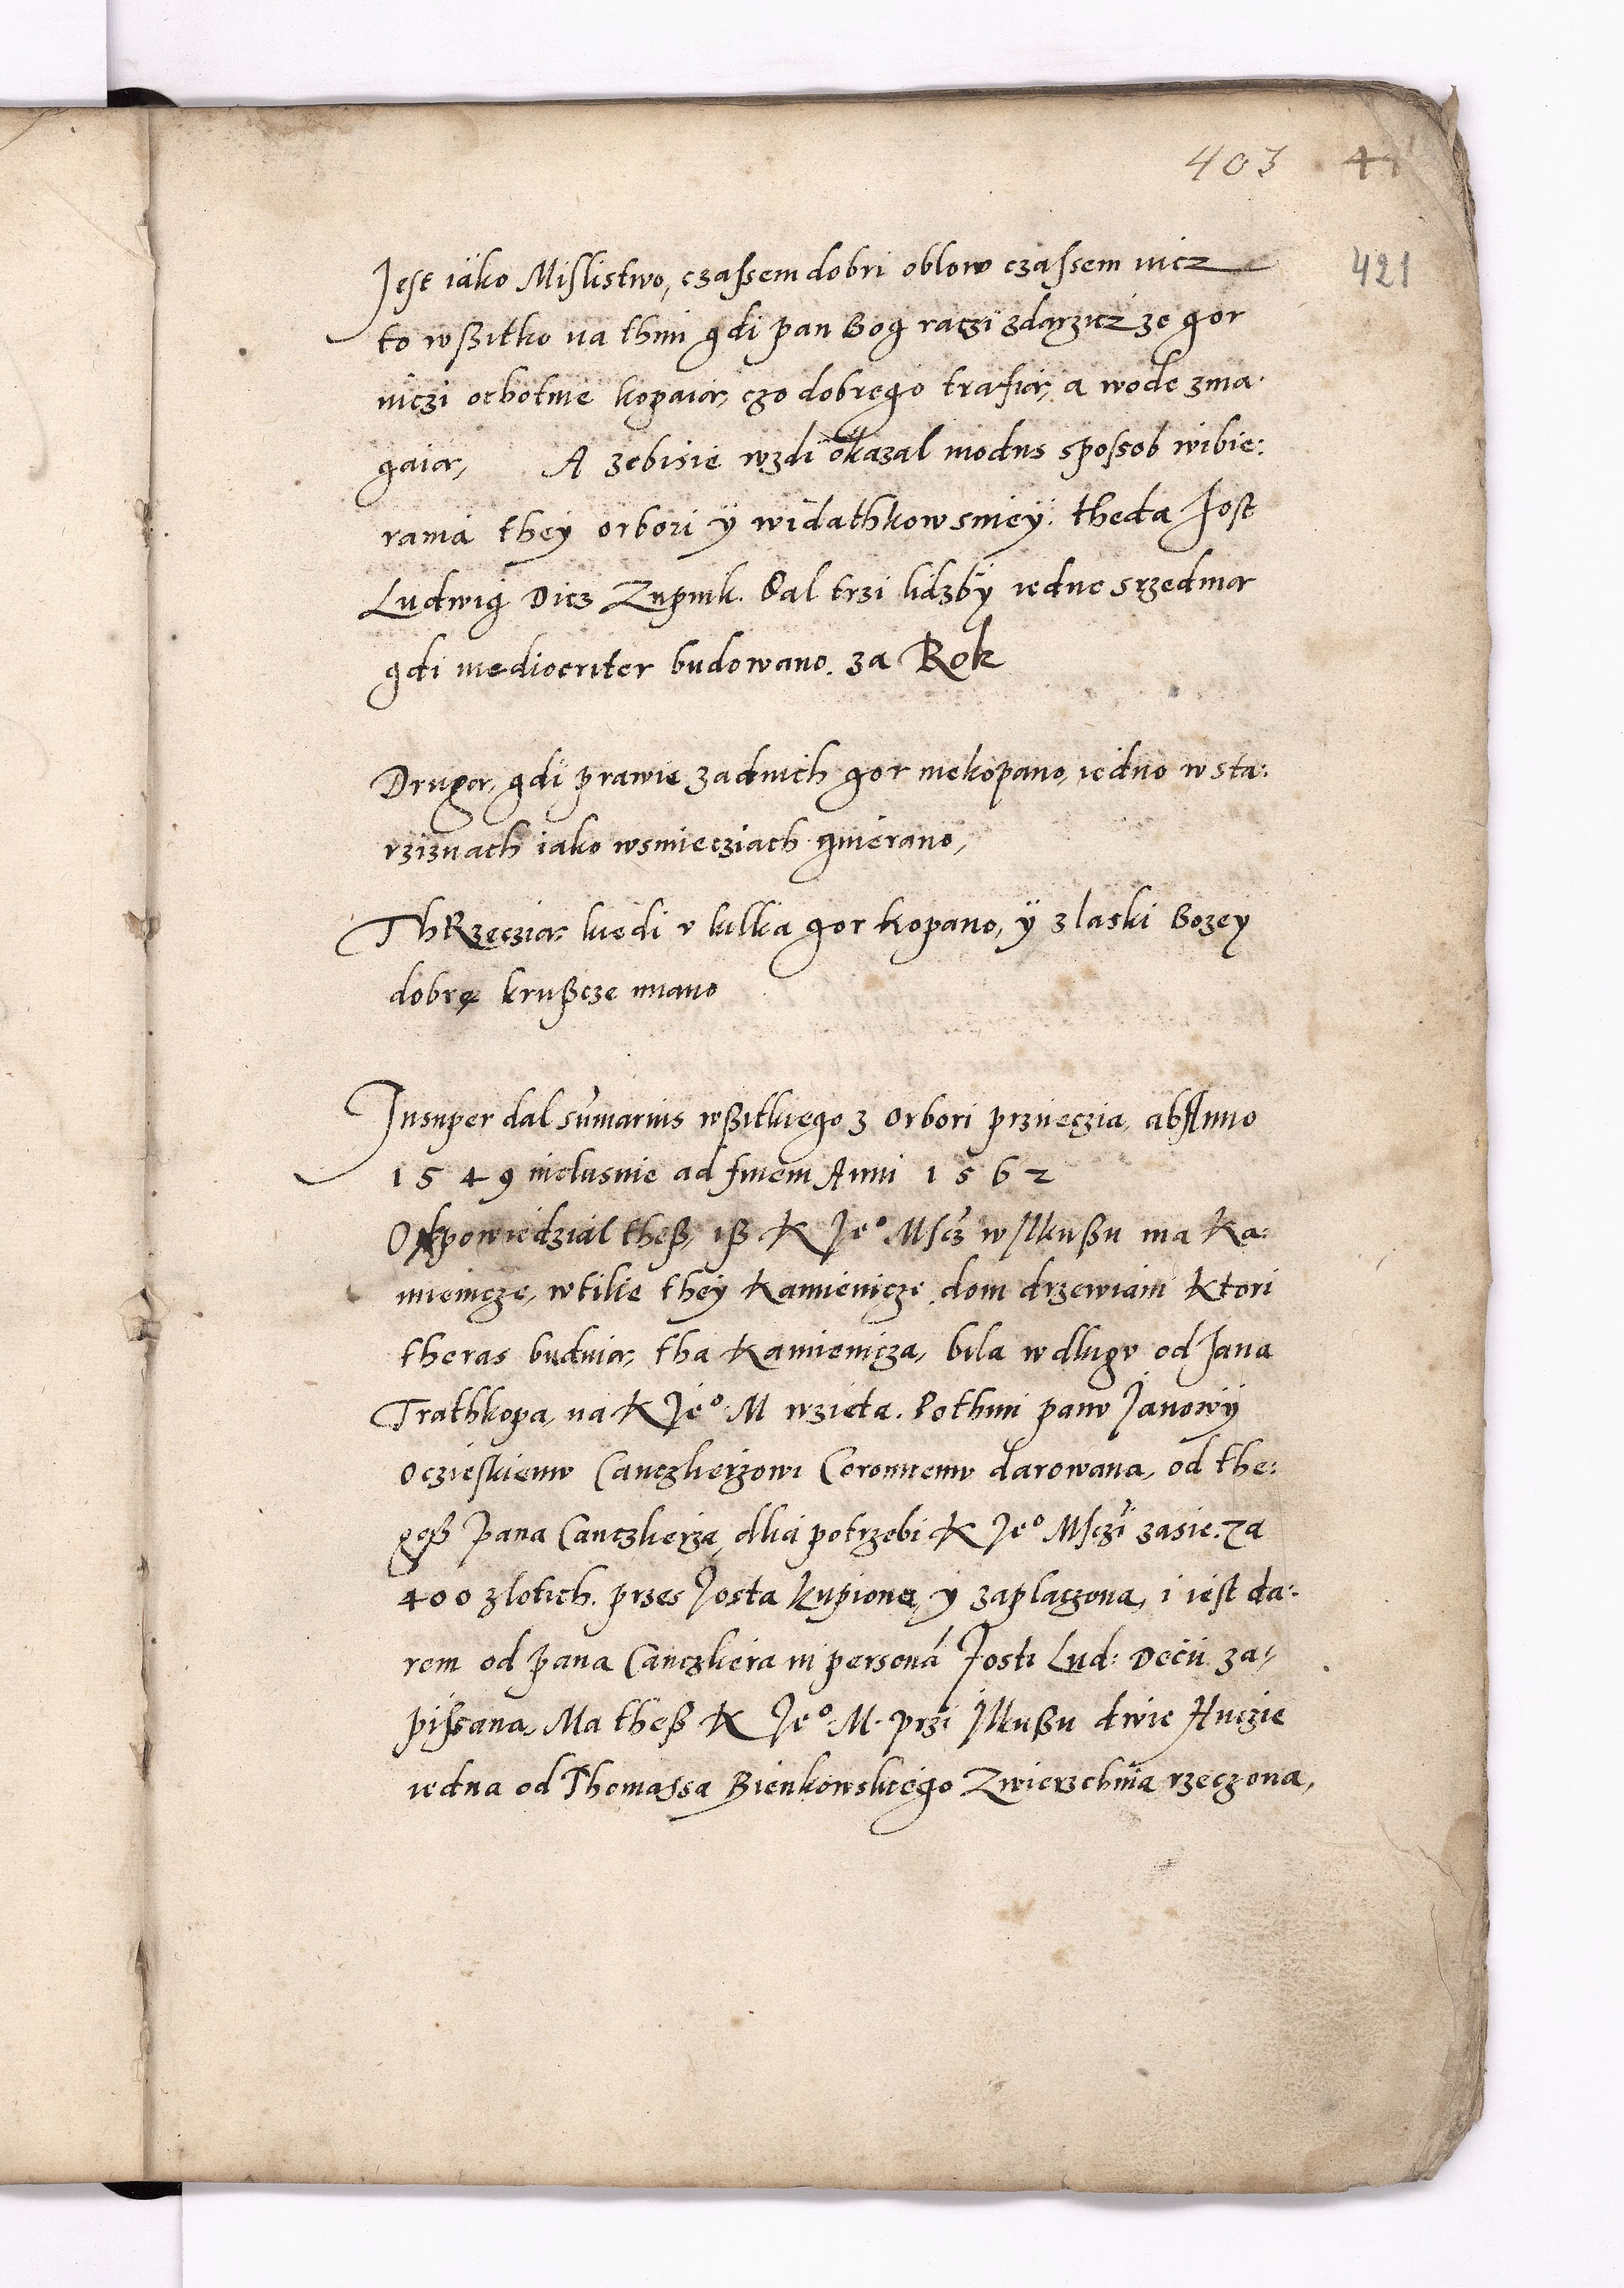 403 41
421
Jest iako Mislistwo, czassem dobri oblow czassem nicz
to wßitko na thim gdi pan Bog raczi zdarzicz ze gor
niczi ochotnie kopaią, czo dobrego trafią, a wode zma-
gaią, A zebisie wzdi okazal modus spossob wibie:
rania they orbori ÿ widathkow smeÿ: theda Jost
Ludwig Dicz Zupnik. Dal trzi lidzbÿ iedne srzednią
gdi mediocriter budowano. za Rok
Drugą, gdi prawie zadnich gor niekopano, iedno w sta:
rziznach iako wsmiecziach gmerano,
ThRzeczią, kiedi v kilka gor kopano, ÿ z laski Bozey
dobre krußcze miano
Insuper dal sumarius wßitkiego z orbori prziieczia, ab Anno
1549 inclusiue ad finem Anni 1562
Opowiedzial theß, iß K Je° Mscz w Jlkußu ma Ka:
mienicze, wtilie theÿ Kamienicze dom drzewiani Ktori
theras buduią, tha Kamienicza, bila w dlugv od Jana
Trathkopa, na K Je° M wzieta. Pothim panv Janowÿ
Oczieskiemv Canczlierzowi Coronnemv darowana, od the:
goß pana Canczlierza, dlia potrzebi K Je° Msczi zasie. za
400 zlotich. przes Josta kupiona, y zaplaczona, i iest da:
rem od pana Canczliera in persona Josti Lud: Decii za-
pissana, Ma theß K Je° M. przi Jlkußu dwie Huczie
iedna od Thomassa Bienkowskiego Zwierzchnia rzeczona,